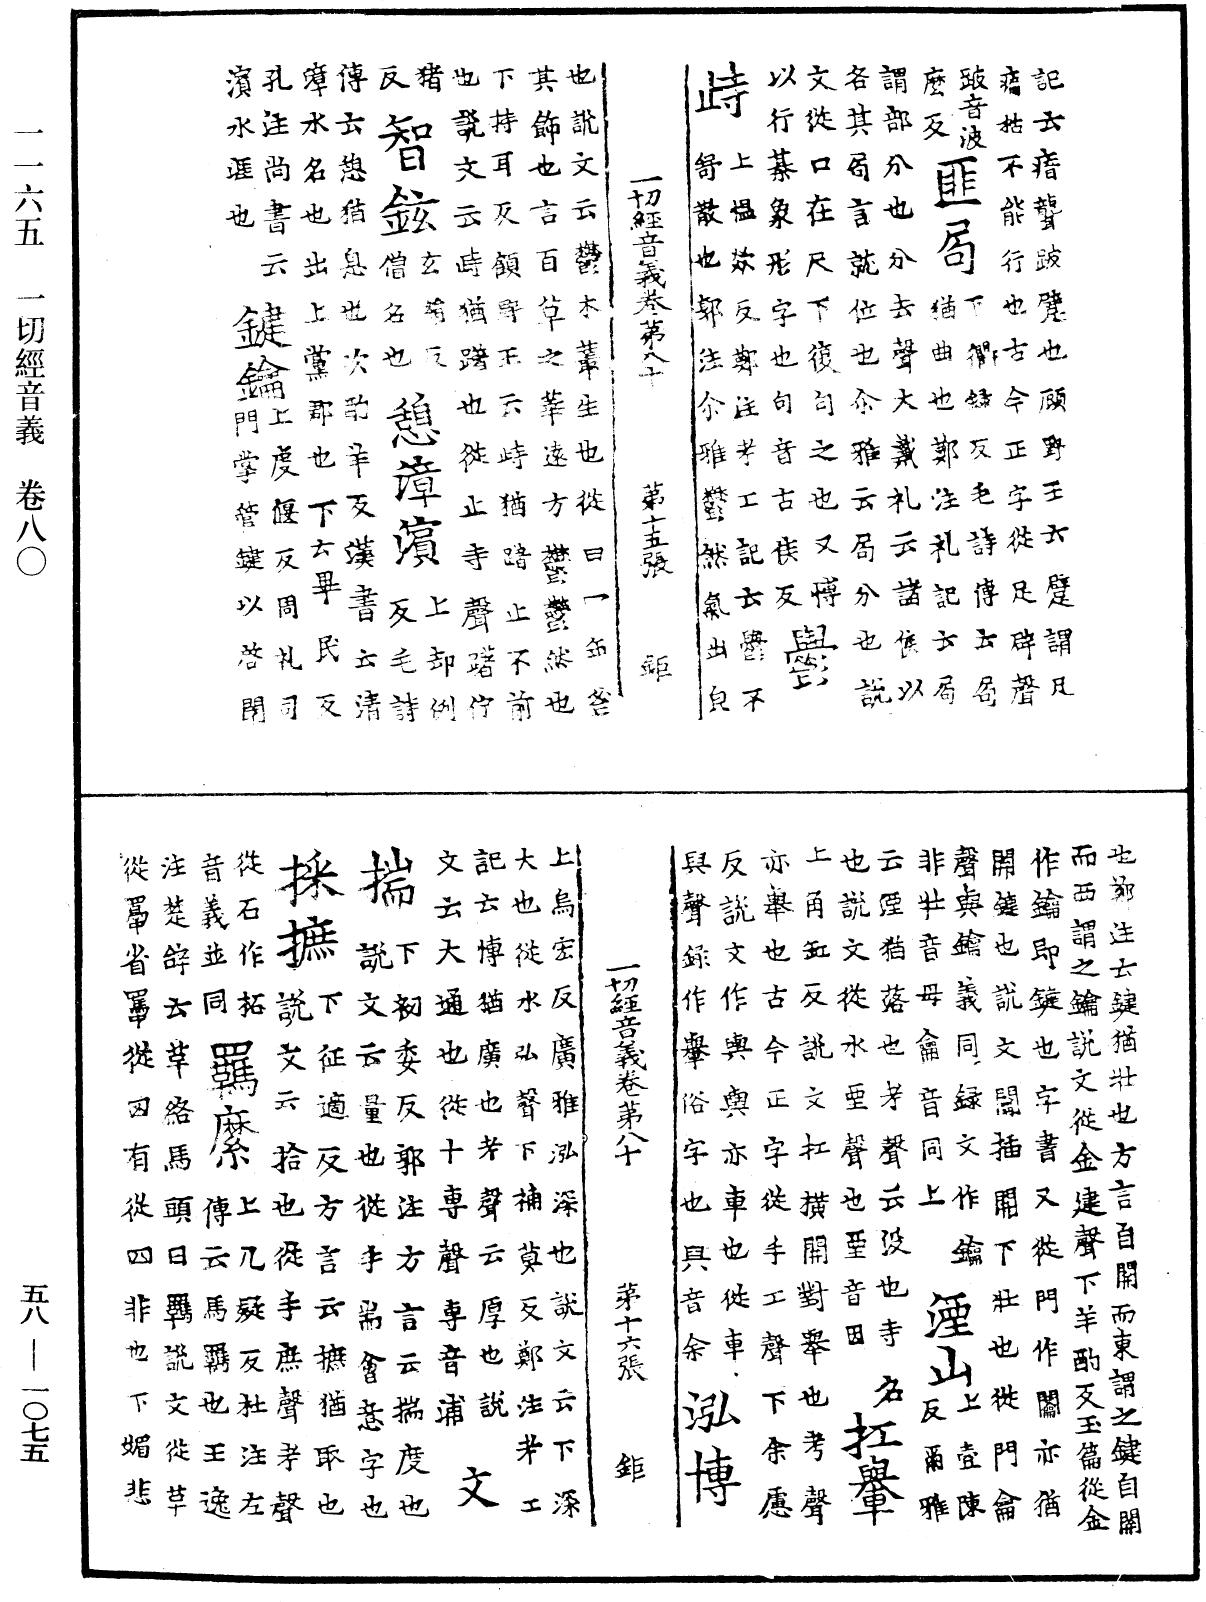 一一六五 一切經音義 卷八〇
五八—一〇七五
記云瘖聾跛躄也顧野王云躄謂尼
𤸪枯不能行也古今正字從足辟聲
跛音波
麼反 匪局 下衢錄反毛詩傳云局
猶曲也鄭注礼記云局
謂部分也分去聲大戴礼云諸侯以
各其局言就位也尒雅云局分也說
文從口在尺下復句之也又博
以行棊象形字也句音古侯反 鬱
峙 上愠欻反鄭注考工記云鬱不
舒散也郭注尒雅鬱然氣出皃
一切經音義卷第八十 第十五張 鉅
也說文云鬱木藂生也從臼冖缶㐱
其飾也言百草之華遠方鬱鬱然也
下持耳反顧野王云峙猶踖止不前
也說文云峙猶躇也從止寺聲躇佇
猪
反 智鉉 玄犬反
僧名也 憩漳濱 上却例
反毛詩
傳云憩猶息也次酌辛反漢書云清
漳水名也出上黨郡也下云畢民反
孔注尚書云
濱水涯也 鍵鑰 上虔偃反周礼司
門掌管鍵以啓閉
也鄭注云鍵猶壯也方言自關而東謂之鍵自關
而西謂之鑰說文從金建聲下羊酌反玉篇從金
作鑰即鍵也字書又從門作闟亦猶
關鍵也說文闟插關下壯也從門龠
聲與鑰義同錄文作鑰
非壯音母龠音同上 湮山 上壹陳
反爾雅
云湮猶落也考聲云没也寺名
也說文從水垔聲也垔音因 扛轝
上角缸反說文扛橫關對舉也考聲
亦轝也古今正字從手工聲下余慮
反說文作輿輿亦車也從車
與聲錄作轝俗字也與音余 泓博
一切經音義卷第八十 第十六張 鉅
上烏宏反廣雅泓深也說文云下深
大也從水弘聲下補莫反鄭注考工
記云博猶廣也考聲云厚也說
文云大通也從十專聲專音浦 文
揣 下初委反郭注方言云揣度也
說文云量也從手耑會意字也
採摭 下征適反方言云摭猶取也
說文云拾也從手庶聲考聲
從石作拓
音義並同 羈縻 上几疑反杜注左
傳云馬羈也王逸
注楚辝云革絡馬頭曰羈說文從革
從䍜省䍜從罒有從四非也下媚悲